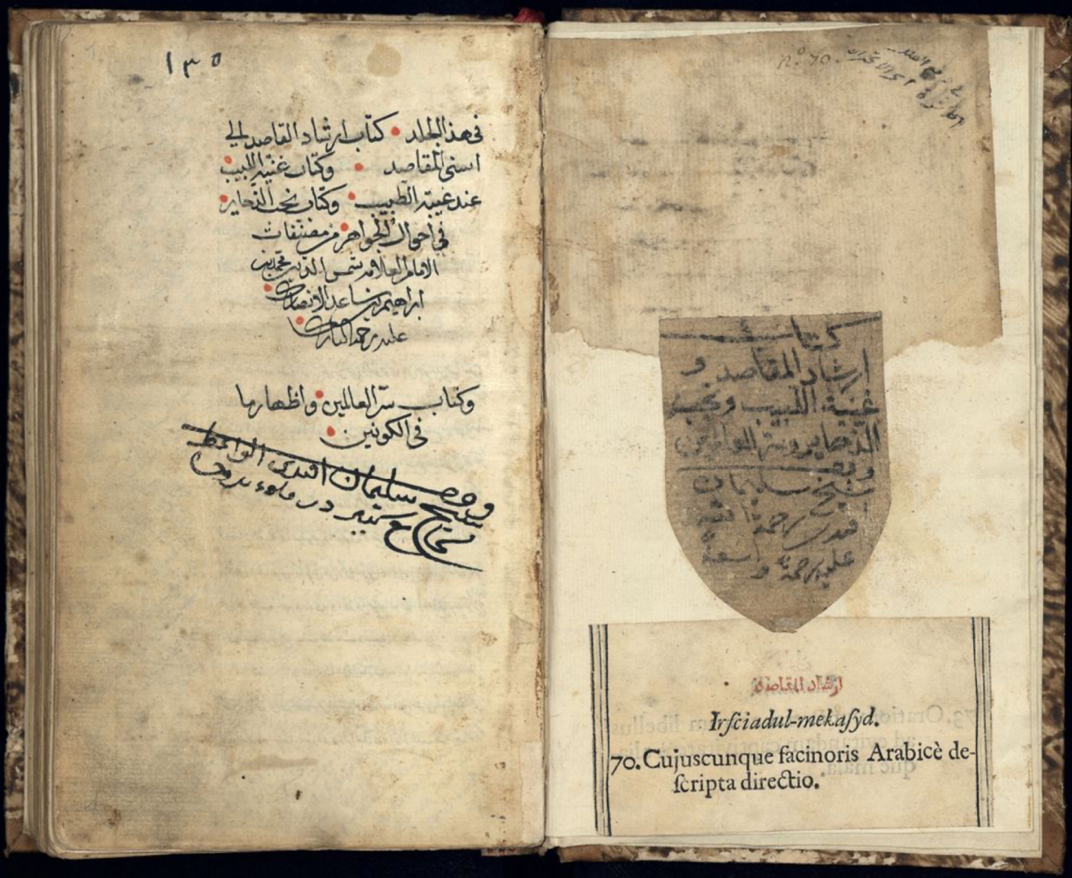 nº. 70.
كتاب
ارشاد المقاصد و
غنية اللبيب ونخب
الذخاير وسر العالمين
وقف
شيخ سليمان
عليه رحمة واسعة
ارشاد المقاصد
Irſciadul-mekaſyd.
70. Cujuscunque facinoris Arabicè de-
ſcripta directio.
١٣٥
في هذا الجلد كتاب ارشاد القاصد الى
اسنى المقاصد وكتاب غنية اللبيب
عند غيبة الطبيب وكتاب نخب الذخاير
في احوال الجواهر من مصنفات
الامام العلامة شمس الدين محمد بن
ابراهيم بن ساعد الانصاري
عليه رحمة الباري
وكتاب سر العالمين واظهارها
في الكونين
وقف شيخ سليمان افندى الواعظ